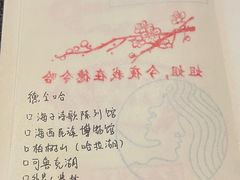 姐姐,今夜我在德令哈
德令哈
口海子诗歌陈列馆
口海西民族博物馆
口柏树山(哈拉湖)
口可鲁克湖